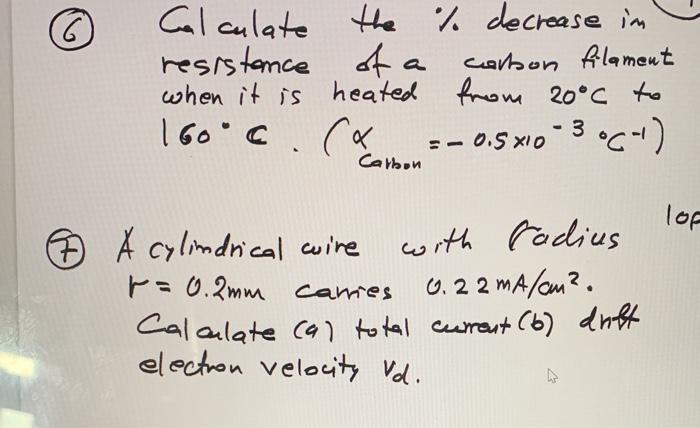 ⑥ Calculate the % decrease in
resistance of a carbon filament
when it is heated from 20°C to
160°C. (α Carbon = - 0.5 x10⁻³ °C⁻¹)
⑦ A cylindrical wire with radius
r = 0.2mm carries 0.22mA/cm².
Calculate (a) total current (b) drift
electron velocity Vd.